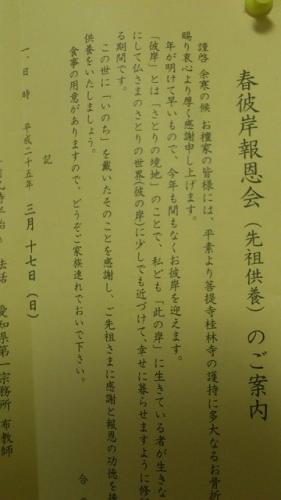 春彼岸報恩会(先祖供養)のご案内
謹啓 余寒の候 お檀家の皆様には、平素より菩提寺桂林寺の護持に多大なるお骨折
賜り衷心より厚く感謝申し上げます。
年が明けて早いもので、今年も間もなくお彼岸を迎えます。
「彼岸」とは「さとりの境地」のことで、私ども「此の岸」に生きている者が生きな
にして仏さまのさとりの世界(彼の岸)に少しでも近づけて、幸せに暮らせますように修
る期間です。
この世に「いのち」を戴いたそのことを感謝し、ご先祖さまに感謝と報恩の功徳を捧
供養をいたしましょう。
食事の用意がありますので、どうぞご家族連れでおいで下さい。
合
記
一、日 時 平成二十五年 三月 十七日(日)
法話 愛知県第一宗務所 布教師